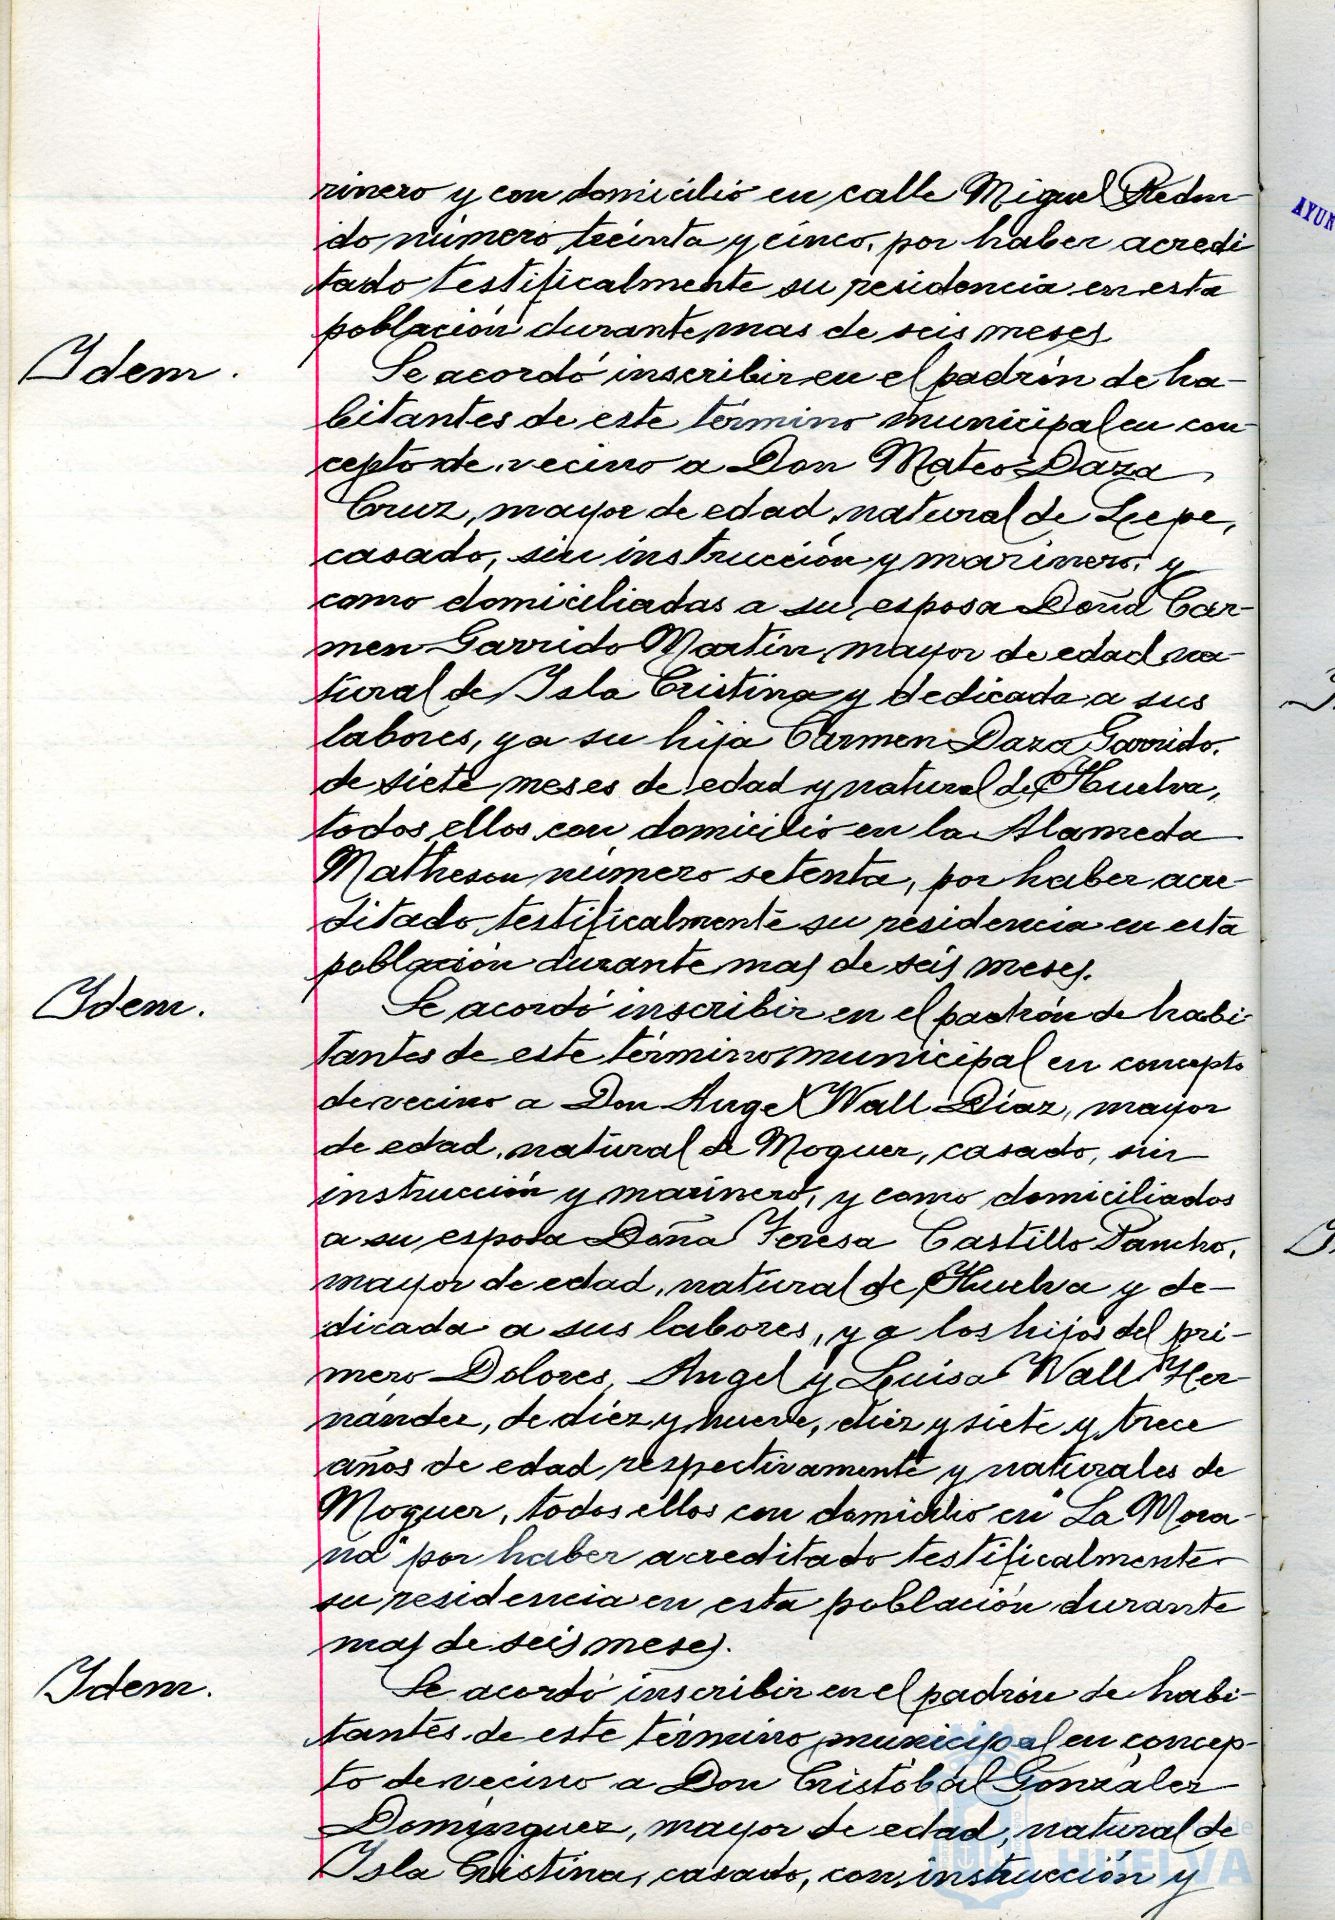 rinero y con domicilio en calle Miguel Redon-
do número treinta y cinco, por haber acredi
tado testificalmente su residencia en esta
población durante mas de seis meses
Idem.
Se acordó inscribir en el padrón de ha-
bitantes de este término municipal en con-
cepto de vecino a Don Mateo Daza
Cruz, mayor de edad, natural de Lepe,
casado, sin instrucción y marinero, y
como domiciliadas a su esposa Doña Car-
men Garrido Martín, mayor de edad, na-
tural de Isla Cristina y dedicada a sus
labores, y a su hija Carmen Daza Garrido,
de siete meses de edad y natural de Huelva,
todos ellos con domicilio en la Alameda
Matheson número setenta, por haber acre-
ditado testificalmente su residencia en esta
población durante mas de seis meses.
Idem.
Se acordó inscribir en el padrón de habi-
tantes de este término municipal en concepto
de vecino a Don Angel Wall Díaz, mayor
de edad, natural de Moguer, casado, sin
instrucción y marinero, y como domiciliados
a su esposa Doña Teresa Castillo Pancho,
mayor de edad, natural de Huelva y de-
dicada a sus labores, y a los hijos del pri-
mero Dolores, Angel y Luisa Wall Her-
nández, de diez y nueve, diez y siete y trece
años de edad respectivamente y naturales de
Moguer, todos ellos con domicilio en "La Mora-
na" por haber acreditado testificalmente
su residencia en esta población durante
mas de seis meses.
Idem.
Se acordó inscribir en el padrón de habi-
tantes de este término municipal en concep-
to de vecino a Don Cristóbal González
Domínguez, mayor de edad, natural de
Isla Cristina, casado, con instrucción y
HUELVA
AYUN